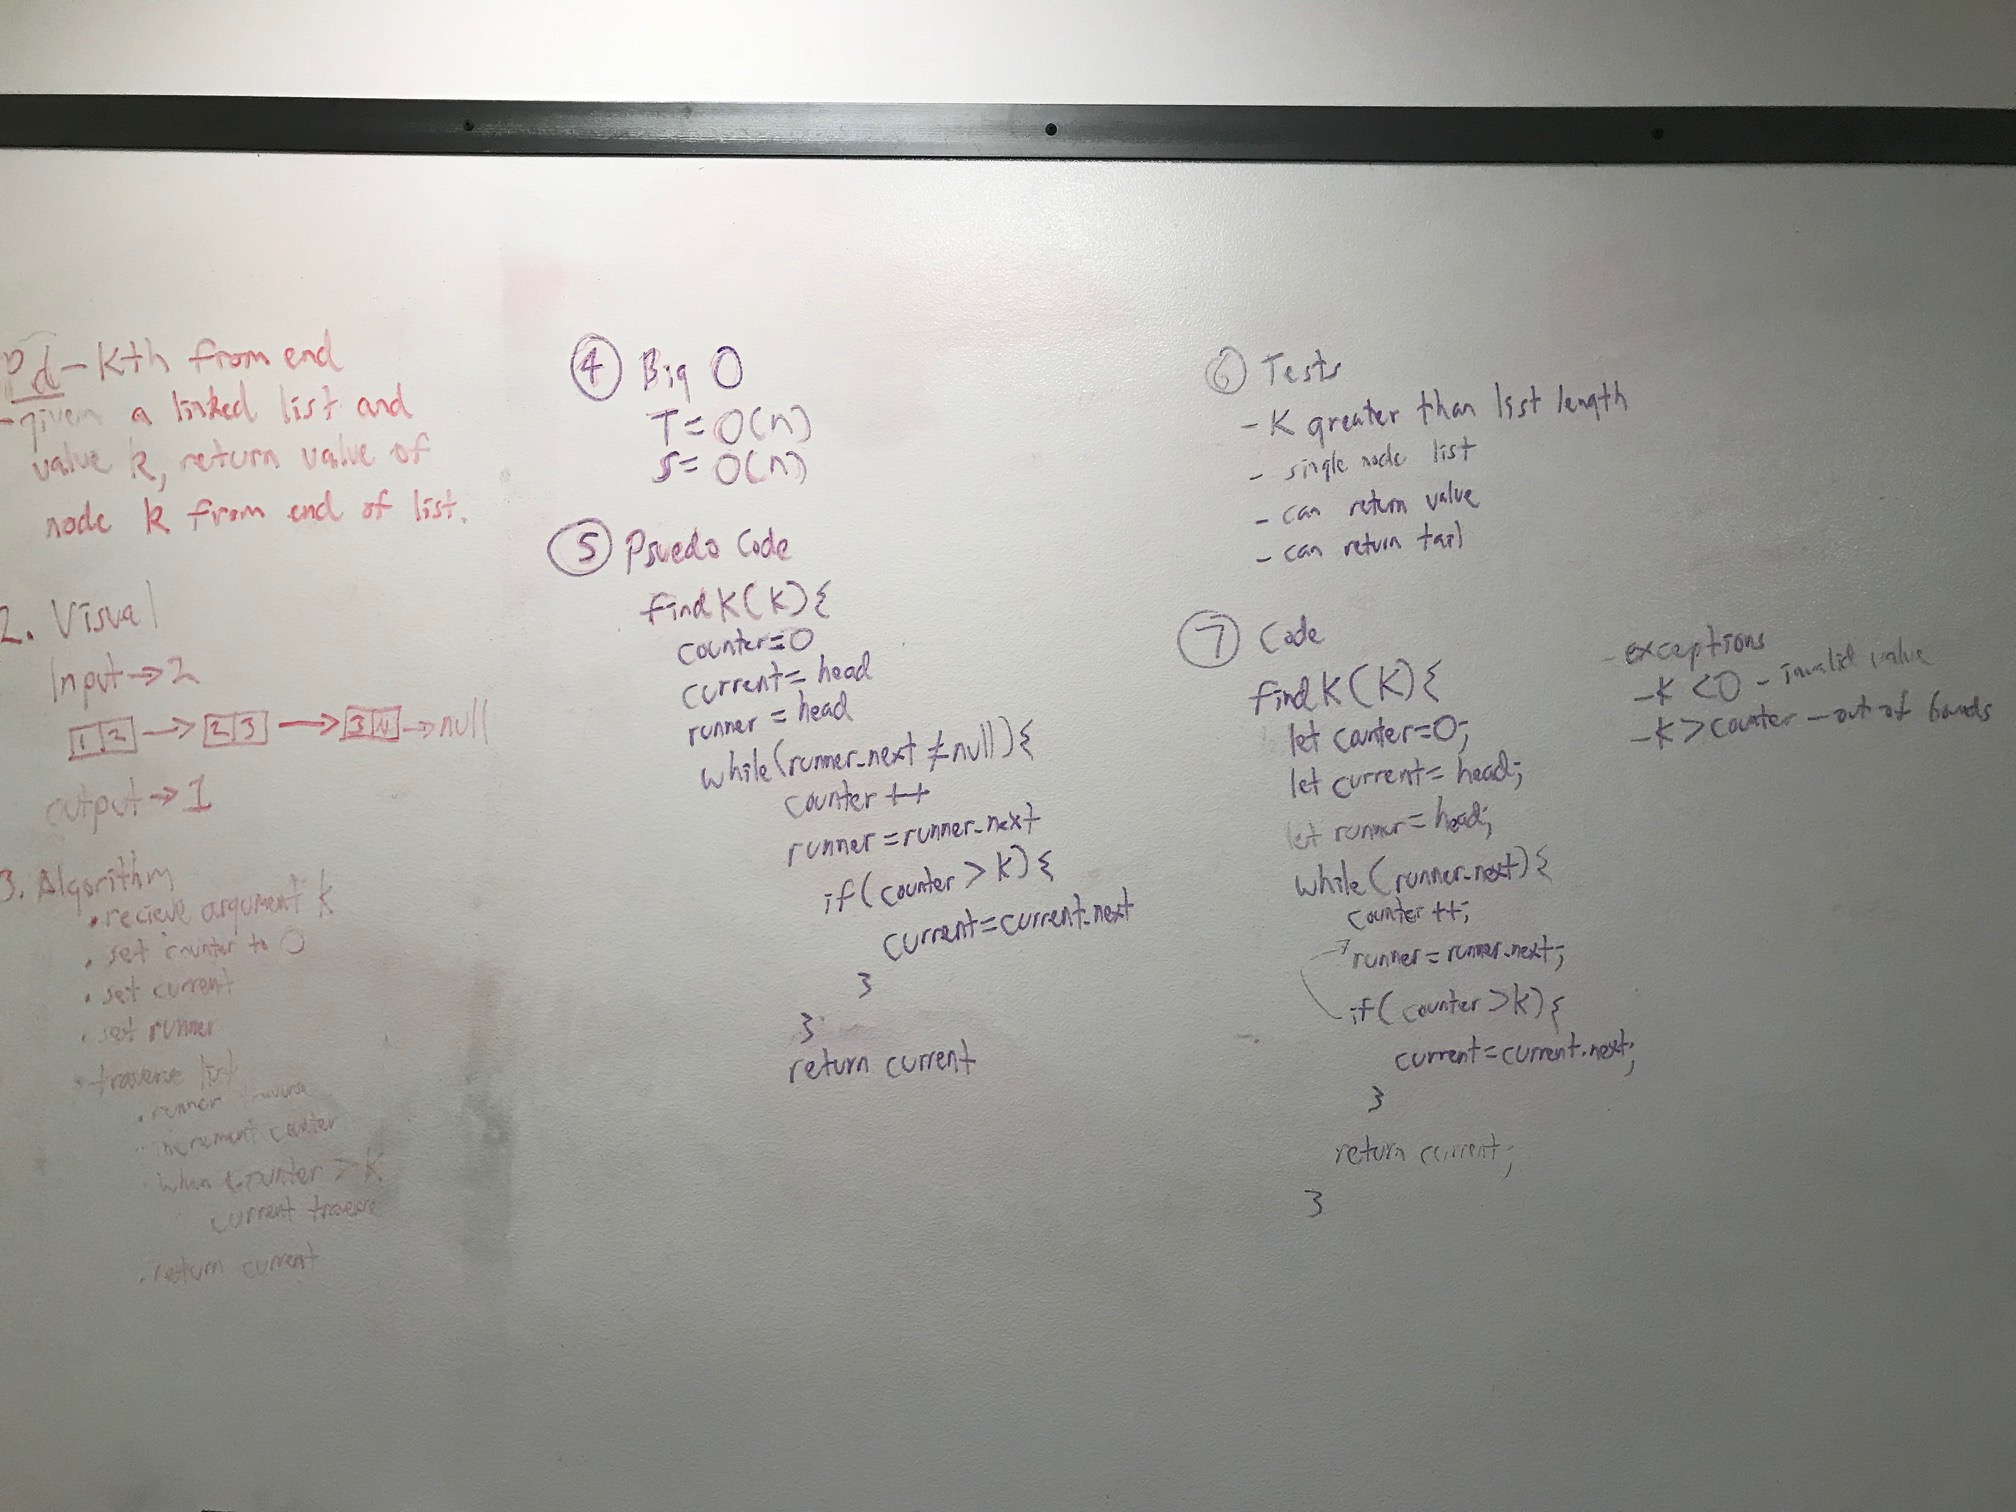 Pd - Kth from end
- given a linked list and
value k, return value of
node k from end of list.
2. Visual
Input → 2
1|2 → 2|3 → 3|4 → null
output → 1
3. Algorithm
• recieve argument k
• set counter to 0
• set current
• set runner
• traverse list
• runner traverse
• increment counter
• when counter > k
current traverse
• return current
④ Big O
T = O(n)
S = O(n)
⑤ Psuedo Code
findK(k){
counter=0
current= head
runner = head
while(runner.next ≠ null){
counter ++
runner = runner.next
if(counter > k){
current=current.next
}
}
return current
⑥ Tests
- K greater than list length
- single node list
- can return value
- can return tail
⑦ Code
findK(K){
let counter=0;
let current= head;
let runner = head;
while(runner.next){
counter ++;
runner = runner.next;
if( counter >k){
current=current.next;
}
return current;
}
- exceptions
- k <0 - invalid value
- k > counter - out of bounds